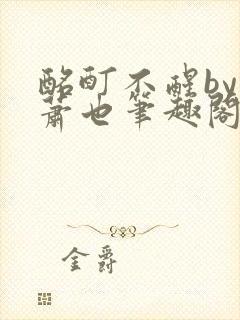 酩酊不醒by
萧也笔趣阁
金爵